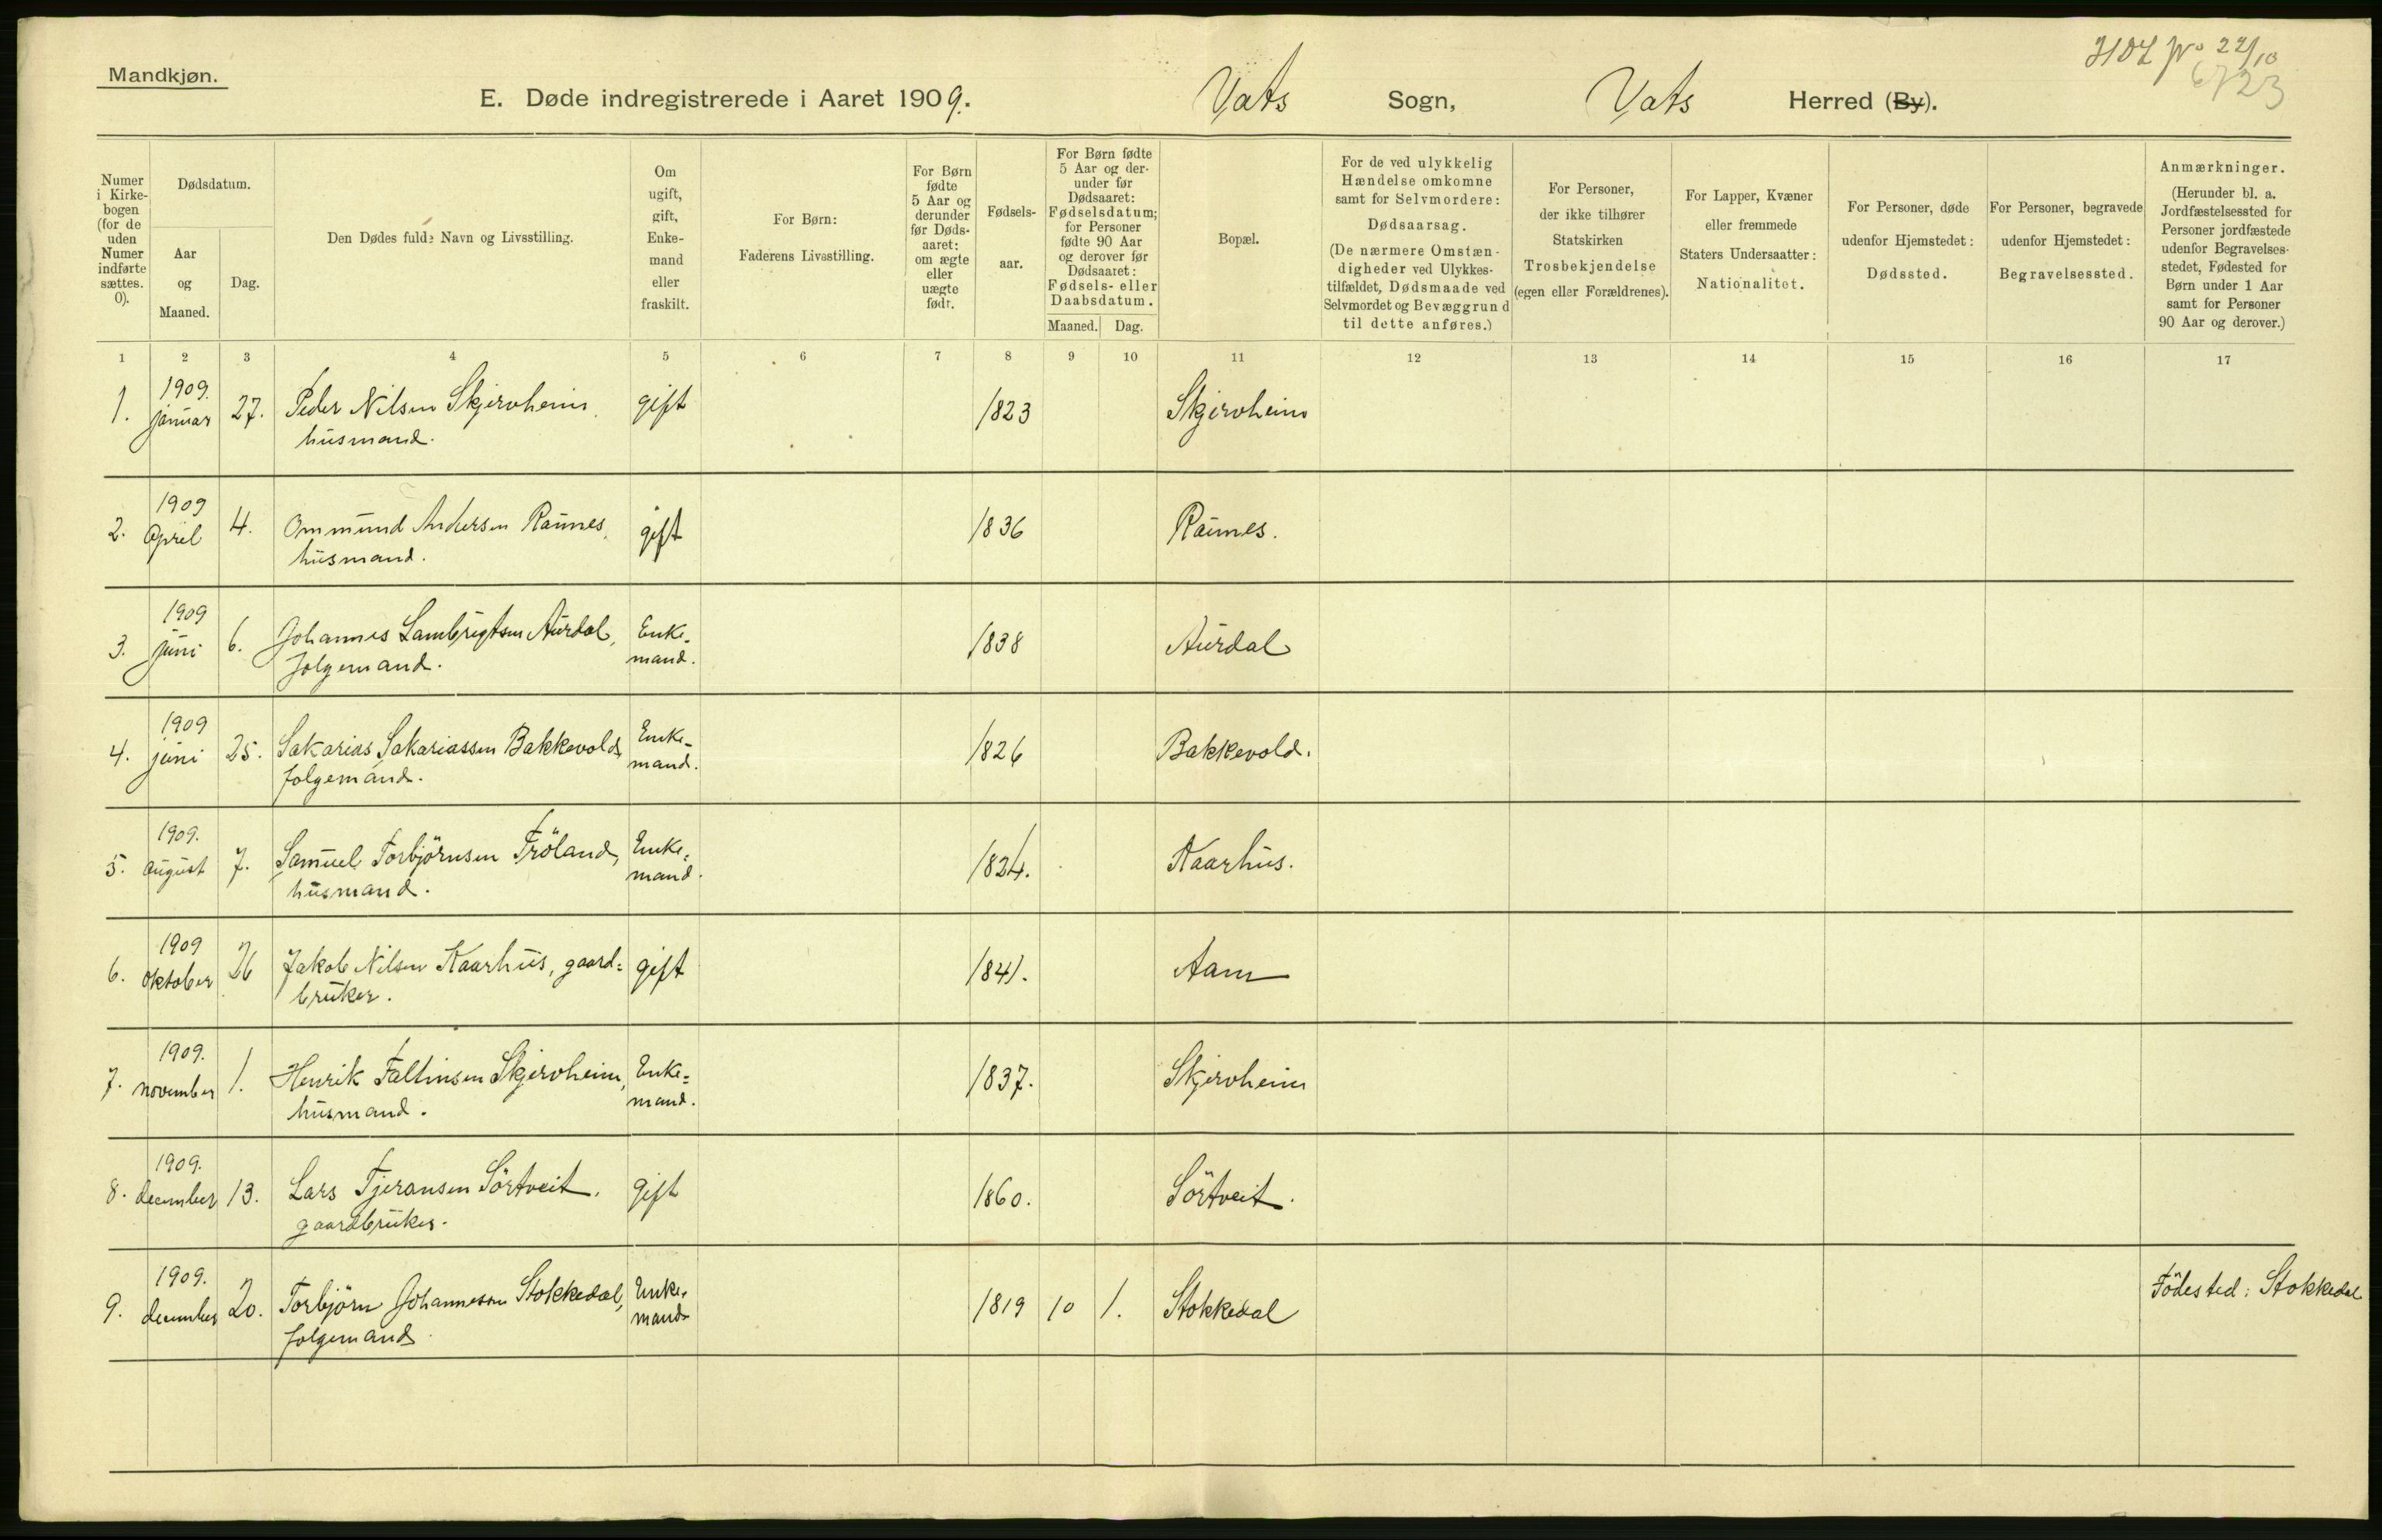 Mandkjøn.
E. Døde indregistrerede i Aaret 1909. Vats Sogn, Vats Herred (By).
Numer i Kirke-bogen (for de uden Numer indførte sættes. 0).
Dødsdatum.
Aar og Maaned.
Dag.
Den Dødes fulde Navn og Livsstilling.
Om ugift, gift, Enke-mand eller fraskilt.
For Børn:
Faderens Livsstilling.
For Børn fødte 5 Aar og derunder før Døds-aaret: om ægte eller uægte født.
Fødsels-aar.
For Børn fødte 5 Aar og der-under før Dødsaaret: Fødselsdatum; for Personer fødte 90 Aar og derover før Dødsaaret: Fødsels- eller Daabsdatum.
Maaned. Dag.
Bopæl.
For de ved ulykkelig Hændelse omkomne samt for Selvmordere:
Dødsaarsag.
(De nærmere Omstæn-digheder ved Ulykkes-tilfældet, Dødsmaade ved Selvmordet og Bevæggrund til dette anføres.)
For Personer, der ikke tilhører Statskirken
Trosbekjendelse
(egen eller Forældrenes).
For Lapper, Kvæner eller fremmede Staters Undersaatter:
Nationalitet.
For Personer, døde udenfor Hjemstedet:
Dødssted.
For Personer, begravede udenfor Hjemstedet:
Begravelsessted.
Anmærkninger.
(Herunder bl. a. Jordfæstelsessted for Personer jordfæstede udenfor Begravelses-stedet, Fødested for Børn under 1 Aar samt for Personer 90 Aar og derover.)
1 2 3 4 5 6 7 8 9 10 11 12 13 14 15 16 17
1. 1909. januar 27. Peder Nilsen Skjervheim, gift 1823 Skjervheim
husmand.
2. 1909 April 4. Ommund Andersen Raunes, gift 1836 Raunes.
husmand.
3. 1909 juni 6. Johannes Lambrigtsen Aurdal, Enke-mand. 1838 Aurdal
folgemand.
4. 1909 juni 25. Sakarias Sakariassen Bakkevold, Enke-mand. 1826 Bakkevold.
folgemand.
5. 1909. august 7. Samuel Torbjörnsen Fröland, Enke=mand. 1824. Kaarhus.
husmand.
6. 1909 oktober 26 Jakob Nilsen Kaarhus, gaard= gift 1841. Aam
bruker.
7. 1909. november 1. Henrik Faltinsen Skjervheim, Enke=mand. 1837. Skjervheim
husmand.
8. 1909. december 13. Lars Tjeransen Sörtveit. gift 1860. Sörtveit.
gaardbruker.
9. 1909. december 20. Torbjörn Johannesen Stokkedal, Enke-mand 1819 10 1. Stokkedal Födested: Stokkedal
folgemand